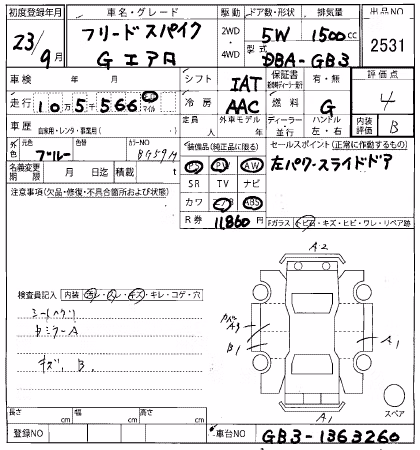 初度登録年月 車名・グレード 駆動 ドア数・形状 排気量 出品NO
23/9月 フリードスパイク 2WD・4WD 5W 1500cc 2531
G エアロ 型式 DBA-GB3
車検 年 月 シフト IAT 保証書 有・無 評価点
走行 10万5千566 マイル 冷房 AAC 燃料 G 4
車歴 自家用・レンタ・事業用( ) 定員 人 外車モデル 年 ディーラー 並行 ハンドル 左・右 内装評価 B
外色 元色 ブルー 色替 カラーNO BG59M 装備品(純正品に限る) セールスポイント(正常に動作するもの)
名義変更期限 月 日迄 積載 t PS PW AW 左パワースライドドア
注意事項(欠品・修復・不具合箇所および状態) SR TV ナビ
カワ エアB ABS
R券 11,860円 Fガラス トビ石・キズ・ヒビ・ワレ・リペア跡
A2
検査員記入 内装 汚レ・スレ・キズ・キレ・コゲ・穴
A3
B1
A1
キズ、B.
A1
スペア
長さ cm 幅 cm 高さ cm
登録NO 車台NO GB3-1363260